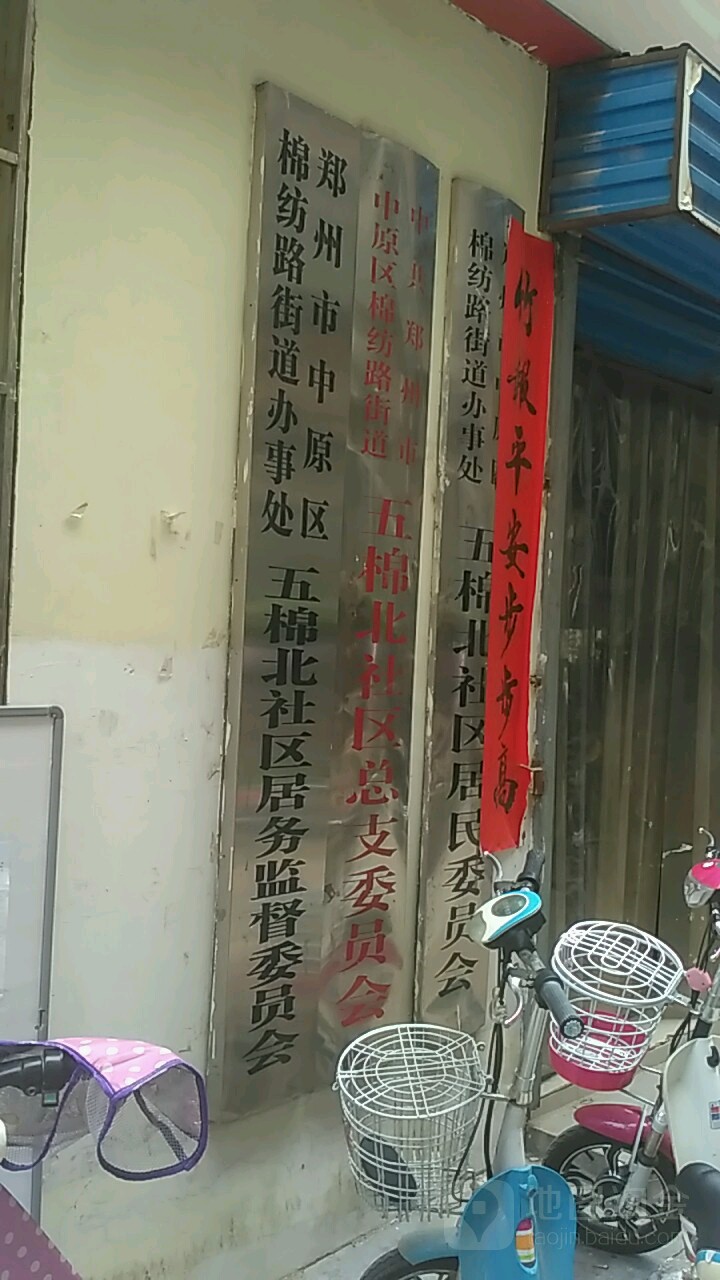 郑州市中原区
棉纺路街道办事处
五棉北社区居务监督委员会
中共郑州市
中原区棉纺路街道
五棉北社区总支委员会
棉纺路街道办事处
五棉北社区居民委员会
竹报平安步步高